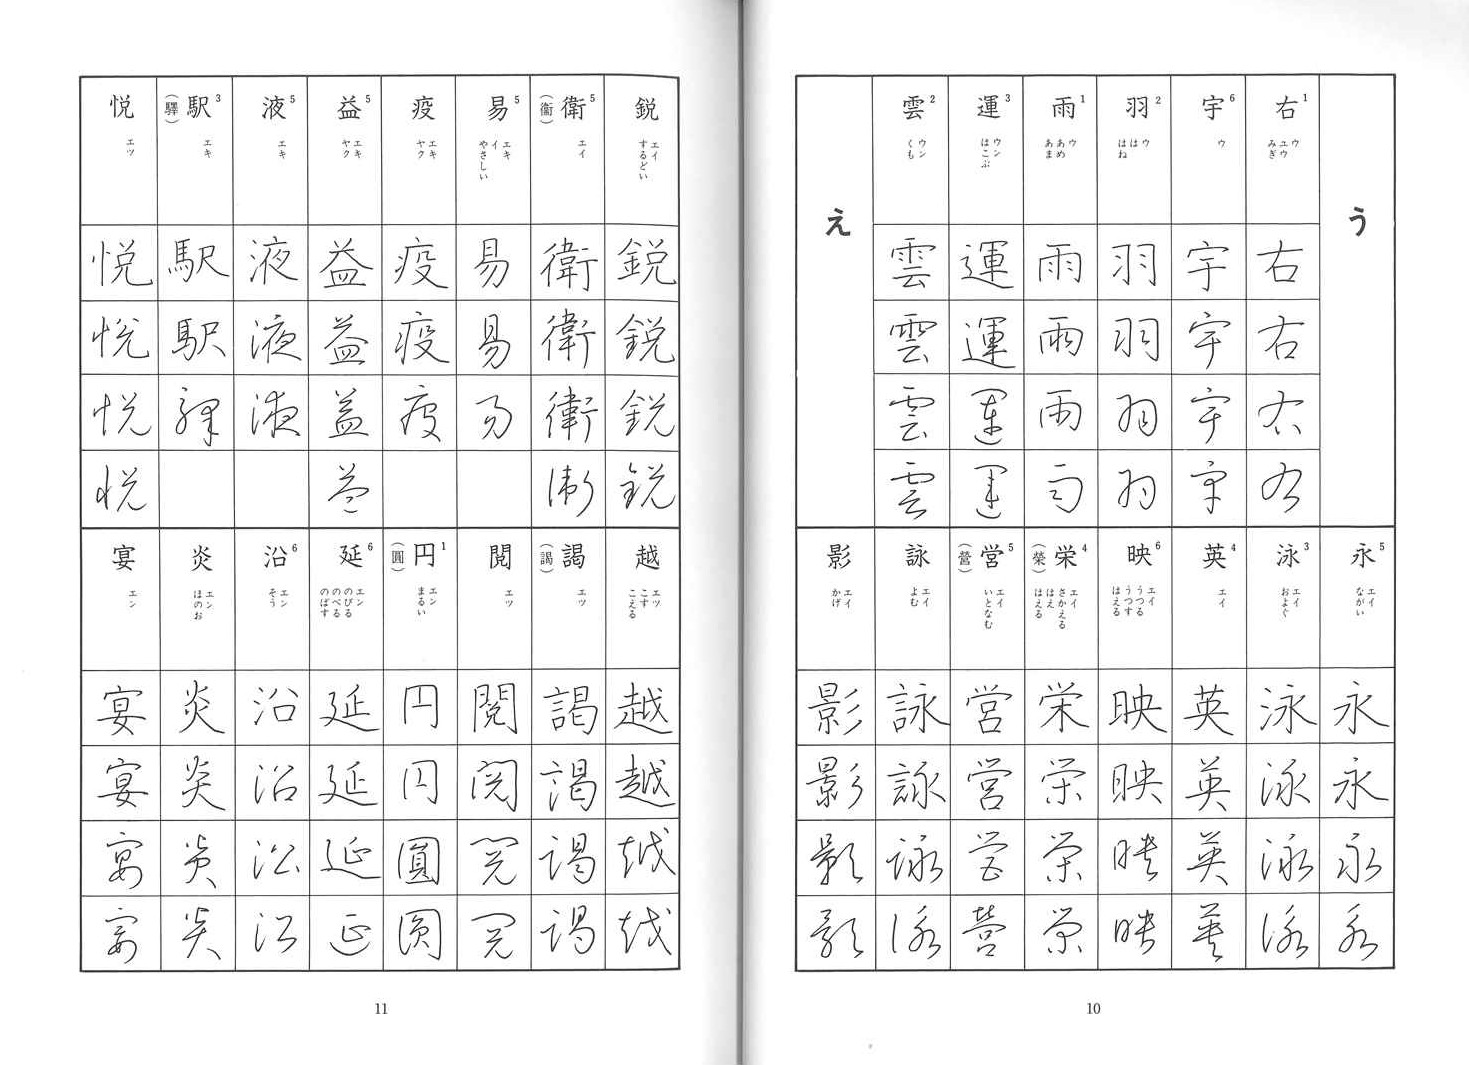 う
右1
ウ
ユウ
みぎ
右
右
右
右
宇6
ウ
宇
宇
宇
宇
羽2
ウ
は
はね
羽
羽
羽
羽
雨1
ウ
あめ
あま
雨
雨
雨
雨
運3
ウン
はこぶ
運
運
運
運
雲2
ウン
くも
雲
雲
雲
雲
え
永5
エイ
ながい
永
永
永
永
泳3
エイ
およぐ
泳
泳
泳
泳
英4
エイ
英
英
英
英
映6
エイ
うつる
うつす
はえる
映
映
映
映
栄4
(榮)
エイ
さかえる
はえ
はえる
栄
栄
栄
栄
営5
(營)
エイ
いとなむ
営
営
営
営
詠
エイ
よむ
詠
詠
詠
詠
影
エイ
かげ
影
影
影
影
10
鋭
エイ
するどい
鋭
鋭
鋭
鋭
衛5
(衞)
エイ
衛
衛
衛
衛
易5
エキ
イ
やさしい
易
易
易
疫
エキ
ヤク
疫
疫
疫
益5
エキ
ヤク
益
益
益
益
液5
エキ
液
液
液
駅3
(驛)
エキ
駅
駅
驛
悦
エツ
悦
悦
悦
悦
越
エツ
こす
こえる
越
越
越
越
謁
(謁)
エツ
謁
謁
謁
謁
閲
エツ
閲
閲
閲
閲
円1
(圓)
エン
まるい
円
円
圓
圓
延6
エン
のびる
のべる
のばす
延
延
延
延
沿6
エン
そう
沿
沿
沿
沿
炎
エン
ほのお
炎
炎
炎
炎
宴
エン
宴
宴
宴
宴
11